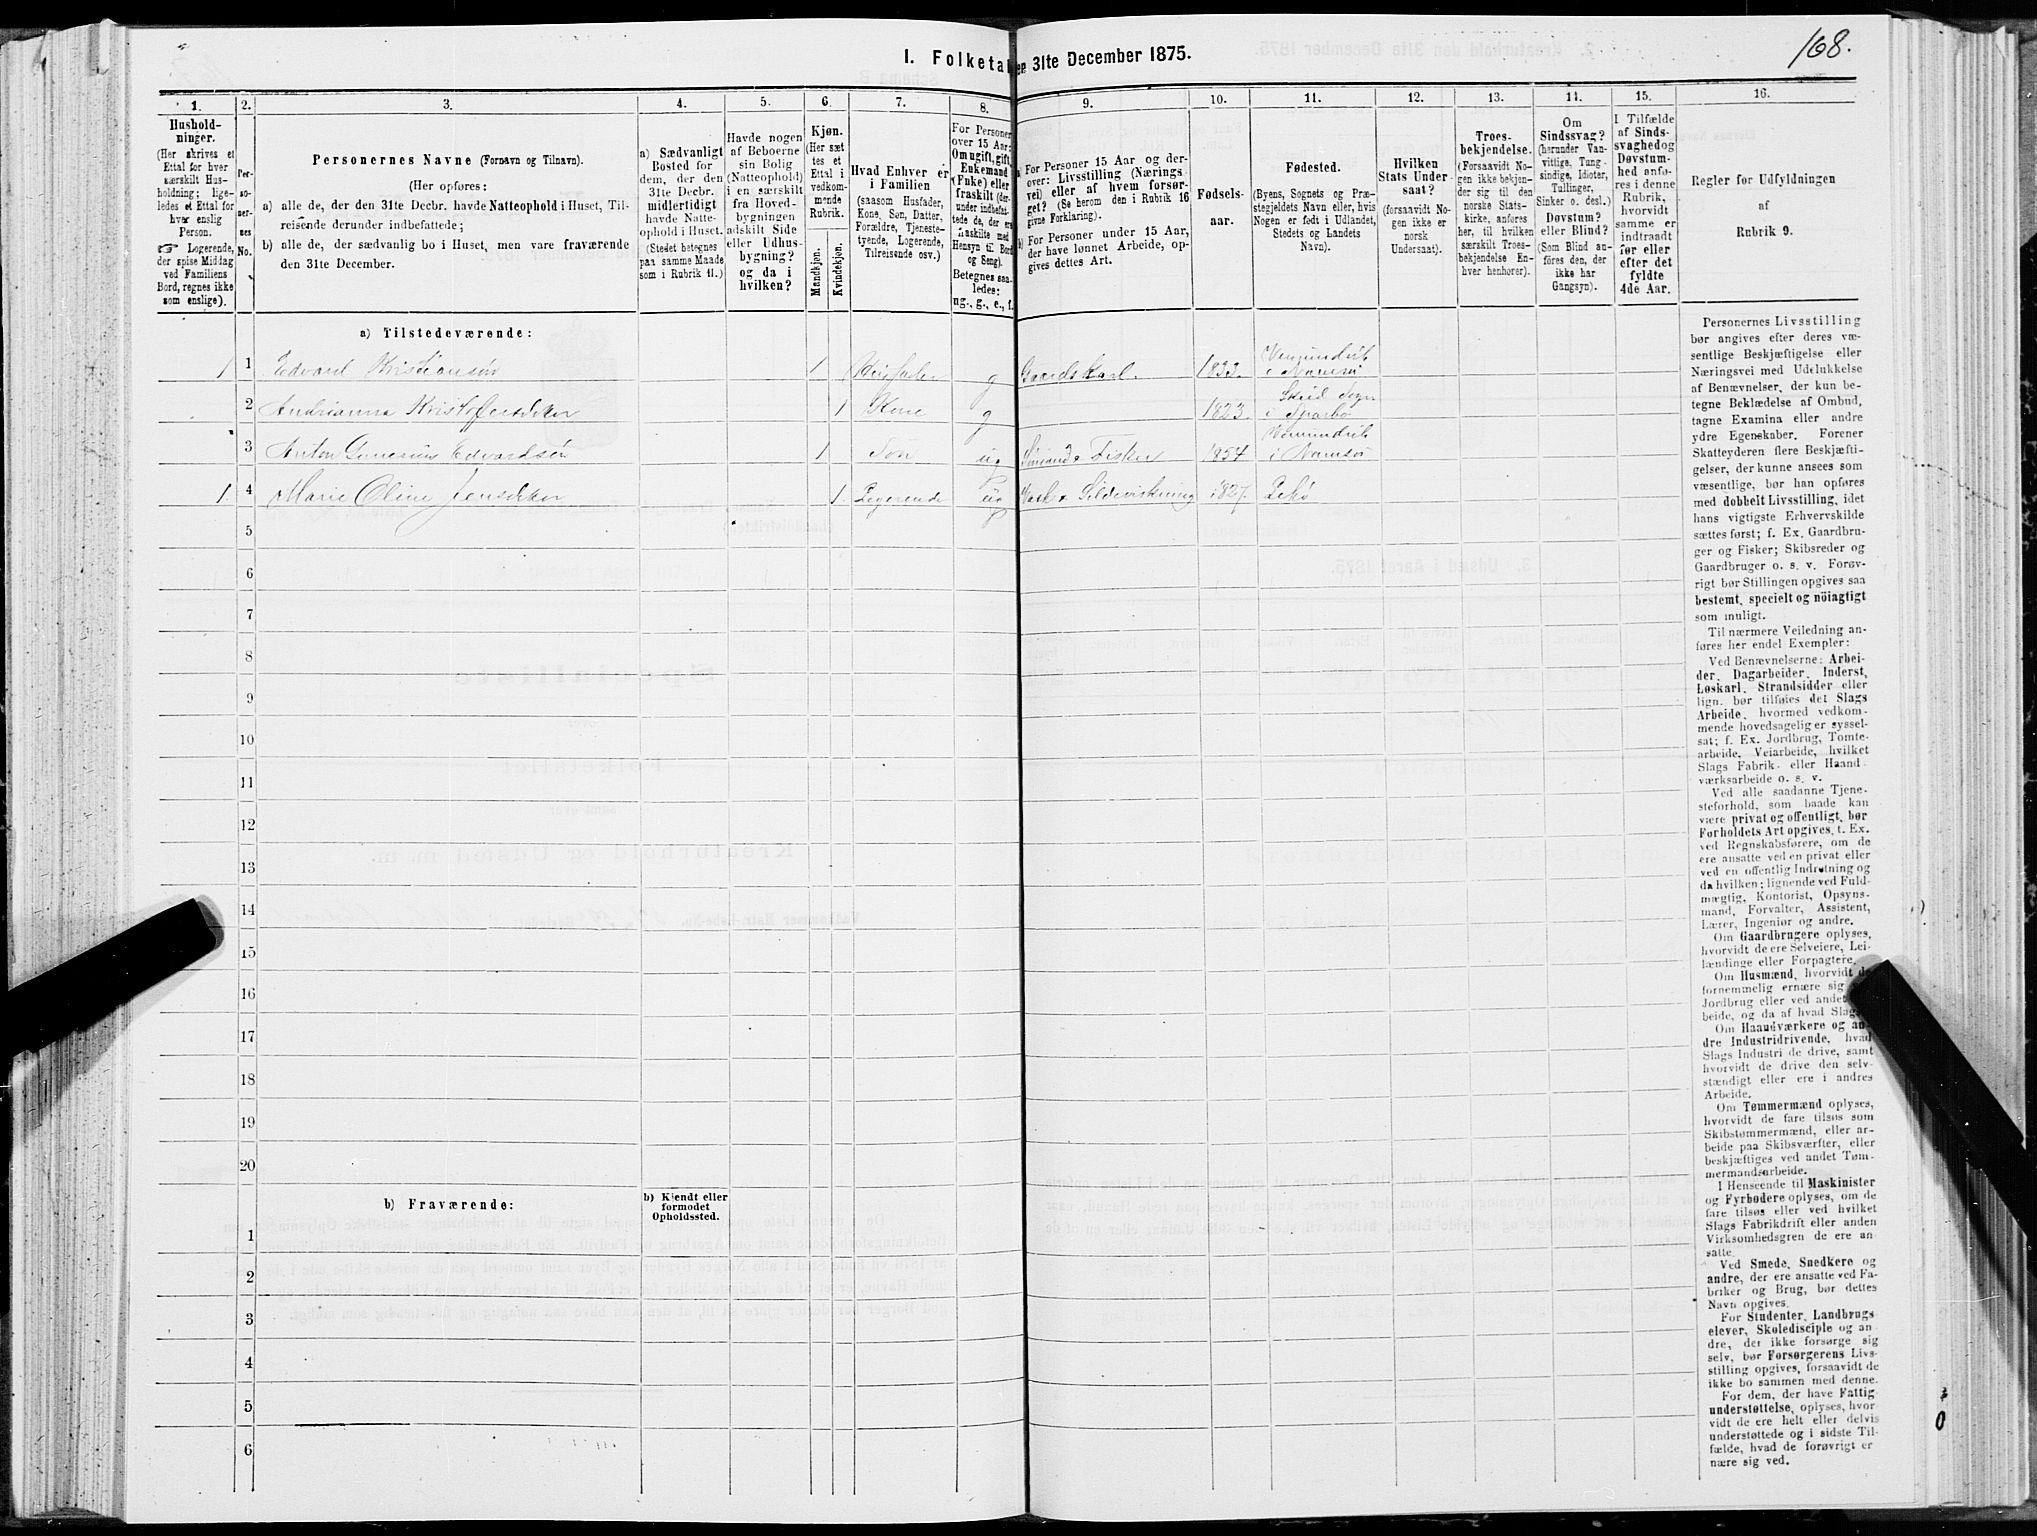 168.
I. Folketal
en 31te December 1875.
1. 2. 3. 4. 5. 6. 7. 8. 9. 10. 11. 12. 13. 14. 15. 16.
Hushold-
ninger.
(Her skrives et
Ettal for hver
særskilt Hus-
holdning; lige-
ledes et Ettal for
hver enslig
Person.
☞ Logerende,
der spise Middag
ved Familiens
Bord, regnes ikke
som enslige).
Per-
so-
ner-
nes
No.
Personernes Navne (Fornavn og Tilnavn).
(Her opføres:
a) alle de, der den 31te Decbr. havde Natteophold i Huset, Til-
reisende derunder indbefattede;
b) alle de, der sædvanlig bo i Huset, men vare fraværende
den 31te December.
a) Sædvanligt
Bosted for
dem, der den
31te Decbr.
midlertidigt
havde Natte-
ophold i Huset.
(Stedet betegnes
paa samme Maade
som i Rubrik 11.)
Havde nogen
af Beboerne
sin Bolig
(Natteophold)
i en særskilt
fra Hoved-
bygningen
adskilt Side
eller Udhus-
bygning?
og da i
hvilken?
Kjøn.
(Her sæt
tes et
Ettal i
vedkom-
mende
Rubrik.
Mandkjøn.
Kvindekjøn.
Hvad Enhver er
i Familien
(saasom Husfader,
Kone, Søn, Datter,
Forældre, Tjeneste-
tyende, Logerende,
Tilreisende osv.)
For Personer
over 15 Aar:
Om ugift, gift,
Enkemand
(Enke) eller
fraskilt (der-
under indbefat-
tede de, der ere
fraskilte med
Hensyn til Bord
og Seng).
Betegnes saa-
ledes:
ug., g., e., f.
a) For Personer 15 Aar og der-
over: Livsstilling (Nærings
vei) eller af hvem forsør-
get? (Se herom den i Rubrik 16
givne Forklaring).
b) For Personer under 15 Aar,
der have lønnet Arbeide, op-
gives dettes Art.
Fødsels-
aar.
Fødested.
(Byens, Sognets og Præ-
stegjeldets Navn eller, hvis
Nogen er født i Udlandet,
Stedets og Landets
Navn).
Hvilken
Stats Under
saat?
(forsaavidt No-
gen ikke er
norsk
Undersaat).
Troes-
bekjendelse.
(Forsaavidt No-
gen ikke bekjen-
der sig til den
norske Stats-
kirke, anføres
her, til hvilken
særskilt Troes-
bekjendelse En-
hver henhører).
Om
Sindssvag?
(herunder Van-
vittige, Tung-
sindige, Idioter,
Tullinger,
Sinker o. desl.)
Døvstum?
eller Blind?
(Som Blind an-
føres den, der
ikke har
Gangsyn).
I Tilfælde
af Sinds-
svaghed og
Døvstum-
hed anfø-
res i denne
Rubrik,
hvorvidt
samme er
indtraadt
før eller
efter det
fyldte
4de Aar.
Regler for Udfyldningen
af
Rubrik 9.
a) Tilstedeværende:
1 1 Edvard Kristiansøn 1 Husfader g Gaardskarl. 1833. Vemundvik
i Namsos
2 Andrianna Kristoffersdatter 1 Kone g 1823. Skeid Sogn
i Sparbo
3 Anton Edvardsøn 1 Søn ug Fisker 1854 Vemundvik
i Namsos
1. 4 Marie Oline Jensdatter 1. Logerende ug 1827. Lekø
5
6
7
8
9
10
11
12
13
14
15
16
17
18
19
20
b) Fraværende:
b) Kjendt eller
formodet
Opholdssted.
1
2
3
4
5
6
Personernes Livsstilling
bør angives efter deres væ-
sentlige Beskjæftigelse eller
Næringsvei med Udelukkelse
af Benævnelser, der kun be-
tegne Beklædelse af Ombud,
tagne Examina eller andre
ydre Egenskaber. Forener
Skatteyderen flere Beskjæfti-
gelser, der kunne ansees som
væsentlige, bør han opføres
med dobbelt Livsstilling, idet
hans vigtigste Erhvervskilde
sættes først; f. Ex. Gaardbru-
ger og Fisker; Skibsreder og
Gaardbruger o. s. v. Forøv-
rigt bør Stillingen opgives saa
bestemt, specielt og nöiagtigt
som muligt.
Til nærmere Veiledning an-
føres her endel Exempler:
Ved Benævnelserne: Arbei-
der, Dagarbeider, Inderst,
Løskarl, Strandsidder eller
lign. bør tilføies det Slags
Arbeide, hvormed vedkom-
mende hovedsagelig er syssel-
sat; f. Ex. Jordbrug, Tomte-
arbeide, Veiarbeide, hvilket
Slags Fabrik- eller Haand-
værksarbeide o. s. v.
Ved alle saadanne Tjene-
steforhold, som baade kan
være privat og offentligt, bør
Forholdets Art opgives, t. Ex.
ved Regnskabsførere, om de
ere ansatte ved en privat eller
ved en offentlig Indretning og
da hvilken; lignende ved Fuld-
mægtig, Kontorist, Opsyns-
mand, Forvalter, Assistent,
Lærer, Ingeniør og andre.
Om Gaardbrugere oplyses,
hvorvidt de ere Selveiere, Lei-
lændinge eller Forpagtere.
Om Husmænd, hvorvidt de
fornemmelig ernære sig
Jordbrug eller ved andet
beide, og da af hvad Slags.
Om Haandværkere og an-
dre Industridrivende, hvad
Slags Industri de drive, samt
hvorvidt de drive den selv-
stændigt eller ere i andres
Arbeide.
Om Tømmermænd oplyses,
hvorvidt de fare tilsøs som
Skibstømmermænd, eller ar-
beide paa Skibsværfter, eller
beskjæftiges ved andet Tøm-
mermandsarbeide.
I Henseende til Maskinister
og Fyrbødere oplyses, om de
fare tilsøs eller ved hvilket
Slags Fabrikdrift eller anden
Virksomhedsgren de ere an-
satte.
Ved Smede, Snedkere og
andre, der ere ansatte ved Fa-
briker og Brug, bør dettes
Navn opgives.
For Studenter, Landbrugs
elever, Skoledisciple og an-
dre, der ikke forsørge sig
selv, bør Forsørgerens Livs-
stilling opgives, forsaavidt de
ikke bo sammen med denne.
For dem, der have Fattig-
understøttelse, oplyses, hvor-
vidt de ere helt eller delvis
understøttede og i sidste Til-
fælde, hvad de forøvrigt er
nære sig ved.